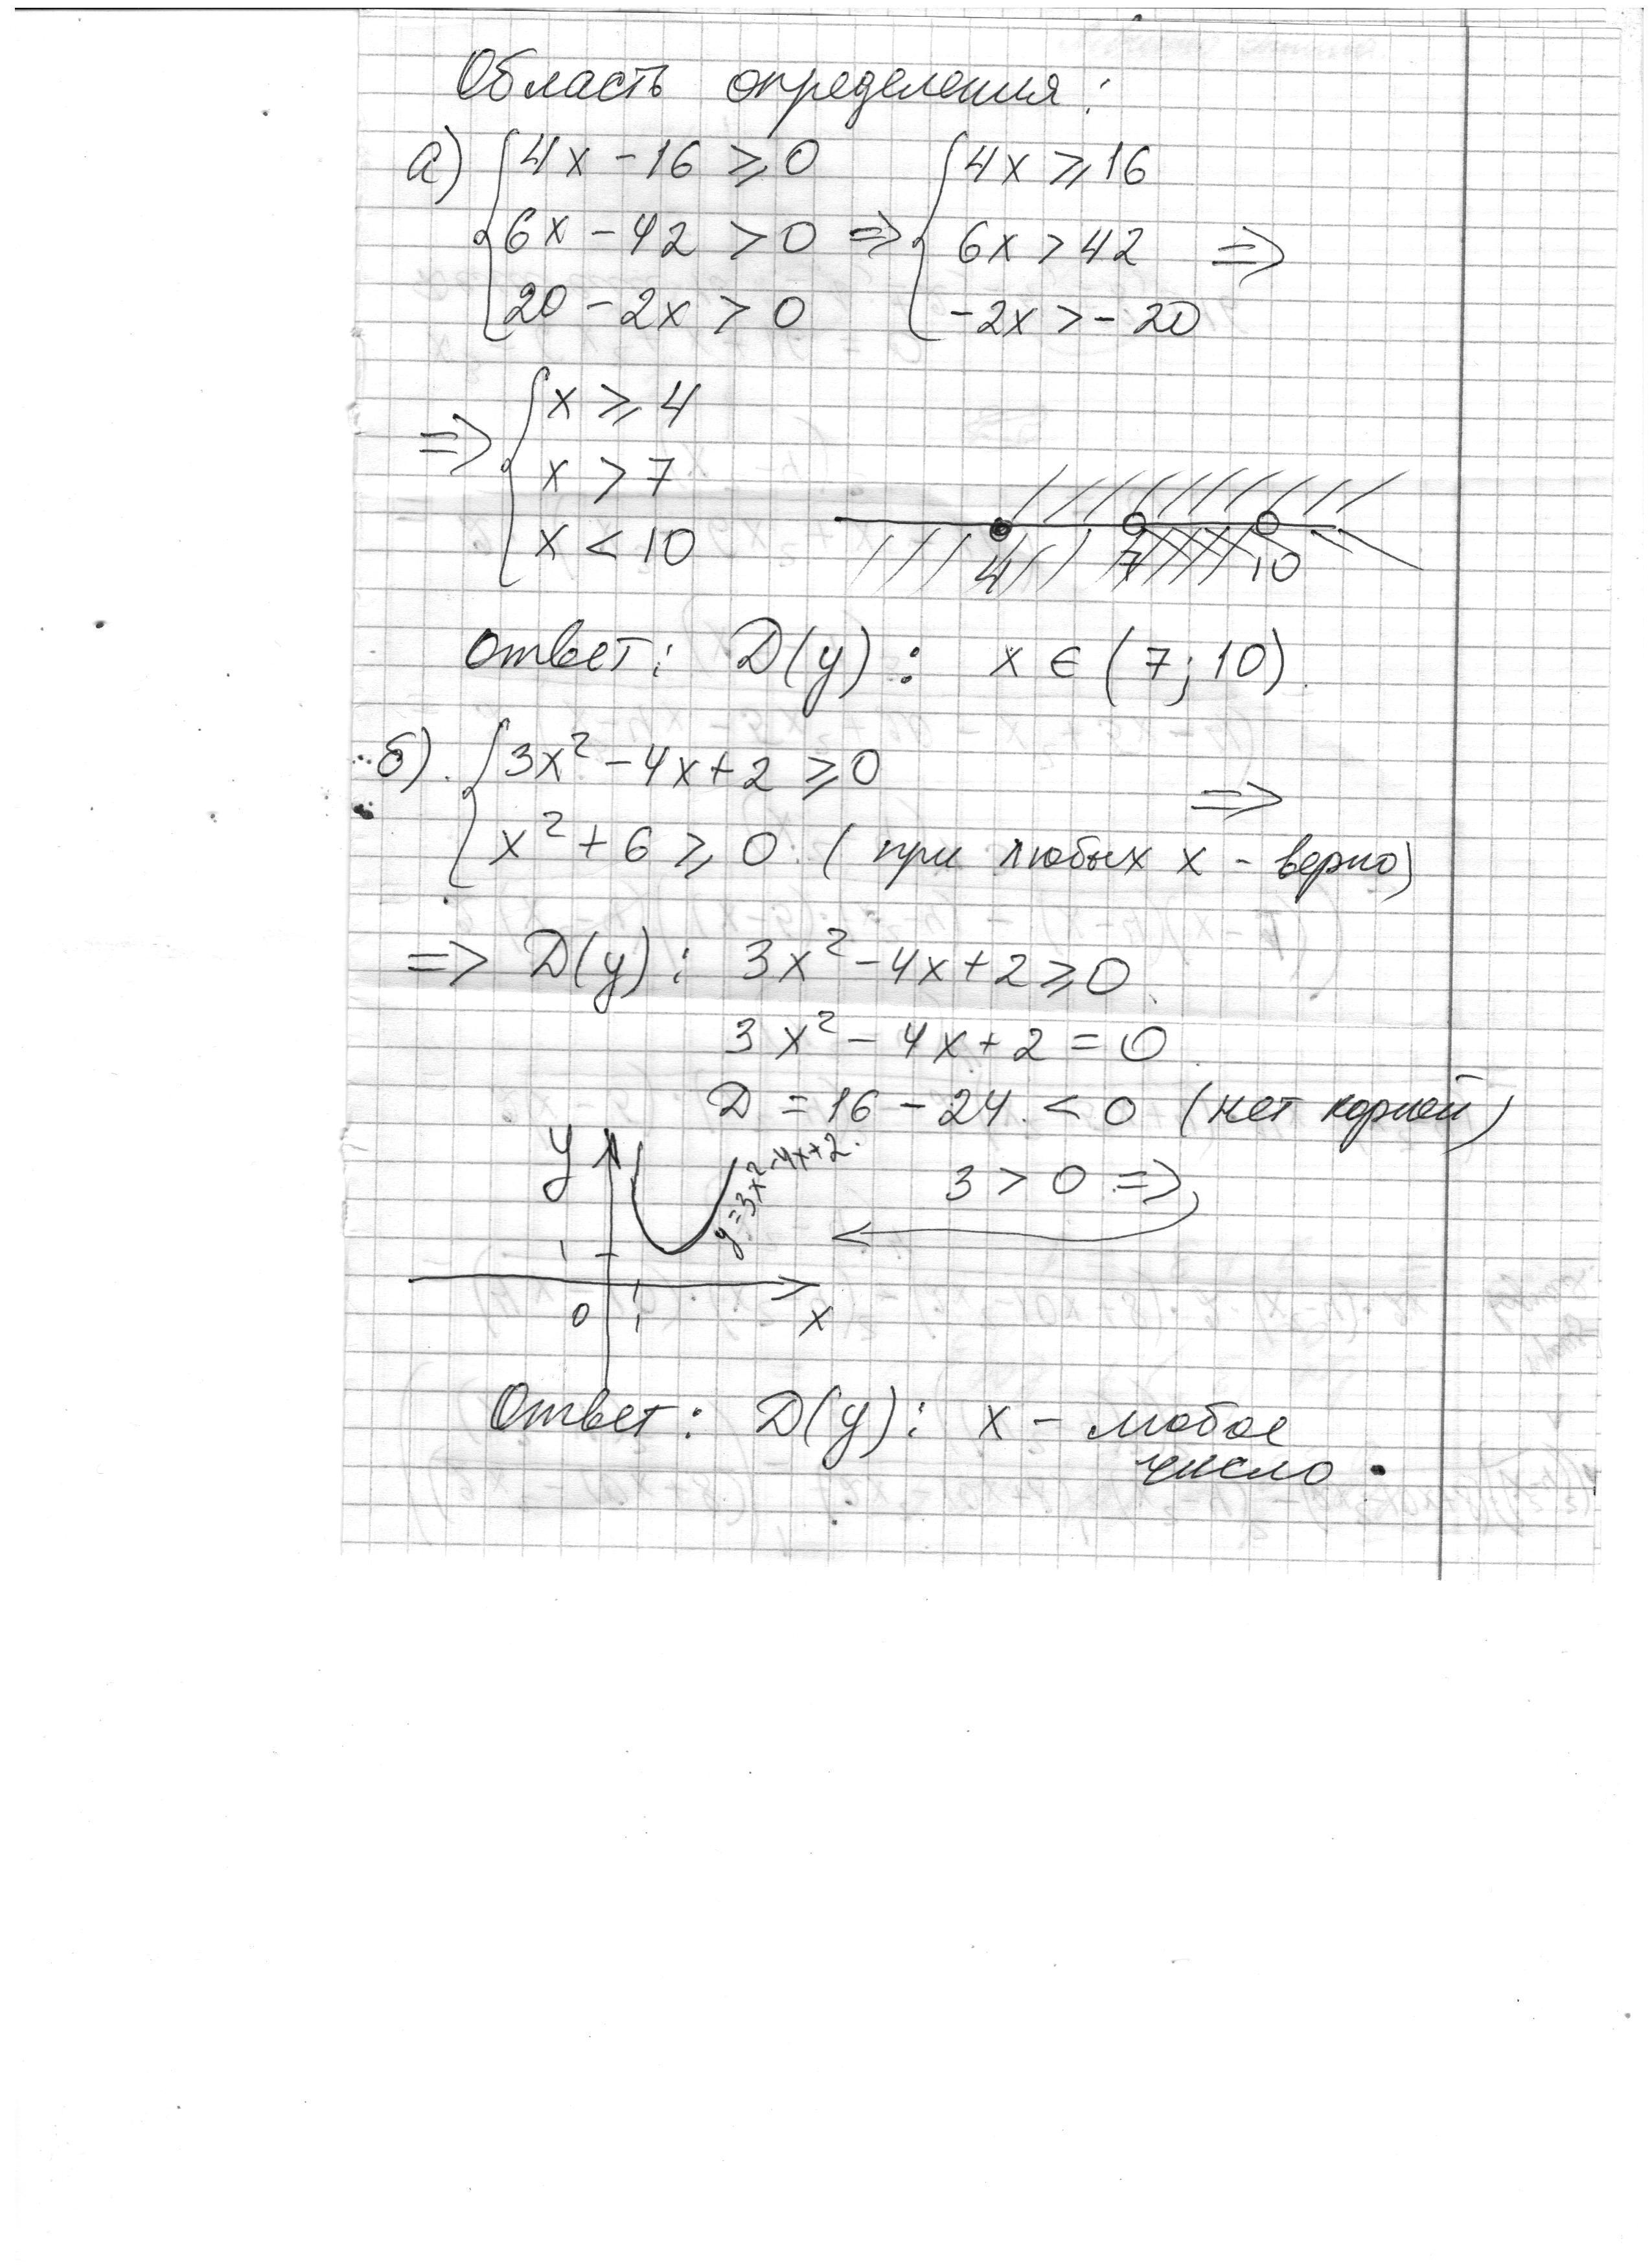 Область определения:
а) { 4x - 16 ⩾ 0 { 4x ⩾ 16
6x - 42 > 0 => 6x > 42 =>
20 - 2x > 0 -2x > - 20
=> { x ⩾ 4
x > 7
x < 10
4 7 10
Ответ: D(y): x ∈ (7; 10).
б). { 3x² - 4x + 2 ⩾ 0 =>
x² + 6 ⩾ 0. (при любых x - верно)
=> D(y): 3x² - 4x + 2 ⩾ 0.
3x² - 4x + 2 = 0.
D = 16 - 24. < 0 (нет корней)
y y=3x²-4x+2. 3 > 0 =>
1
0 1 x
Ответ: D(y): x - любое
число.